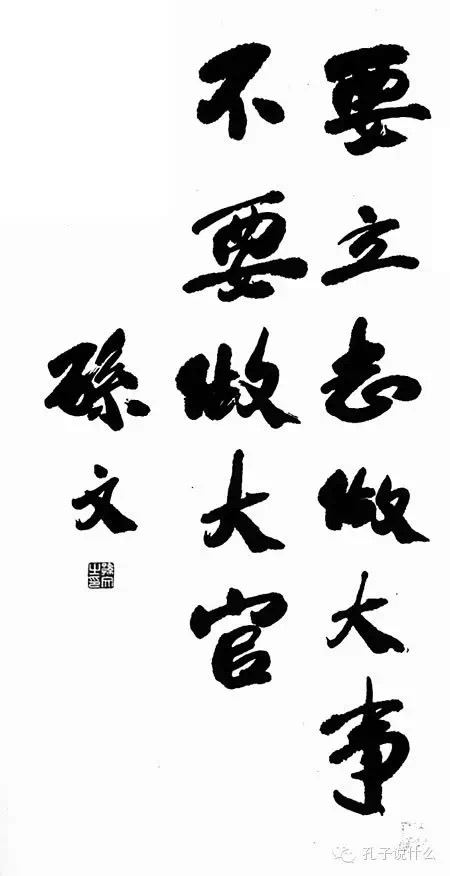 要立志做大事
不要做大官
孫文
孫文之印
孔子说什么